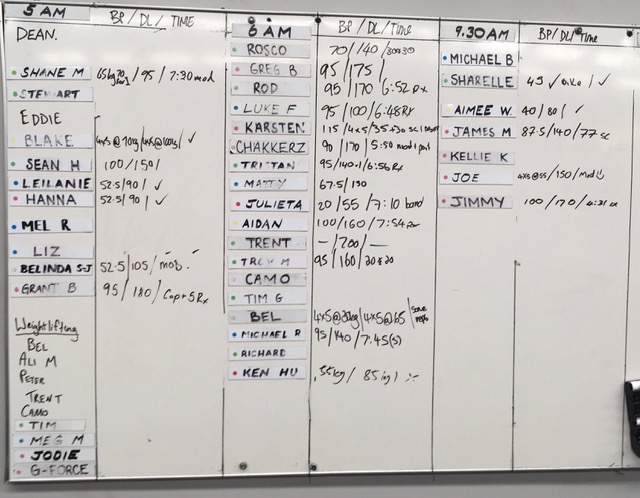 5 AM BP / DL / TIME
DEAN.
SHANE M 65kg / 95 / 7:30 mod
STEWART
EDDIE
BLAKE 4x5 @ 70kg / 4x5 @ 100kg / ✓
SEAN H 100 / 150 /
LEILANIE 52.5 / 90 / ✓
HANNA 52.5 / 90 / ✓
MEL R
LIZ
BELINDA S-J 52.5 / 105 / mod.
GRANT B 95 / 180 / Cap + 5 Rx
Weightlifting
BEL
ALI M
PETER
TRENT
CAMO
TIM
MEG M
JODIE
G-FORCE
6 AM BP / DL / Time
ROSCO 70 / 140 /
GREG B 95 / 175 /
ROD 95 / 170 / 6:52 Rx
LUKE F 95 / 100 / 6:48 Rx
KARSTEN 115 / 4x5 /
CHAKKERZ 90 / 170 / 5:50 mod
TRISTAN 95 / 140.1 / 6:56 Rx
MATTY 67.5 / 130
JULIETA 20 / 55 / 7:10 band
AIDAN 100 / 160 / 7:54
TRENT – / 200 / –
TROY M 95 / 160 /
CAMO
TIM G
BEL 4x5 @ 30kg / 4x5 @ 65 / same reps
MICHAEL R 95 / 140 / 7:45 (s)
RICHARD
KEN HU 35kg / 85kg /
9.30 AM BP / DL / Time
MICHAEL B
SHARELLE 45 / bike / ✓
AIMEE W. 40 / 80 / ✓
JAMES M 87.5 / 140 / 77 sc
KELLIE K
JOE 4x5 @ 55 / 150 / mod
JIMMY 100 / 170 /